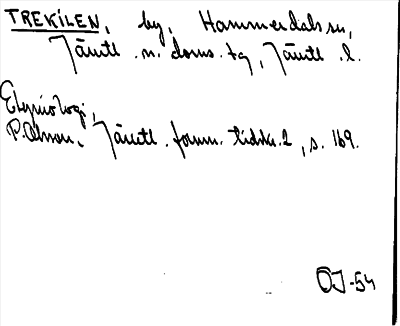 TREKILEN, by, Hammerdals sn,
Jämtl. n. doms. tg, Jämtl. l.
Etymologi,
P. Olsson, Jämtl. fornm. tidskr. 2, s. 169.
OJ-54